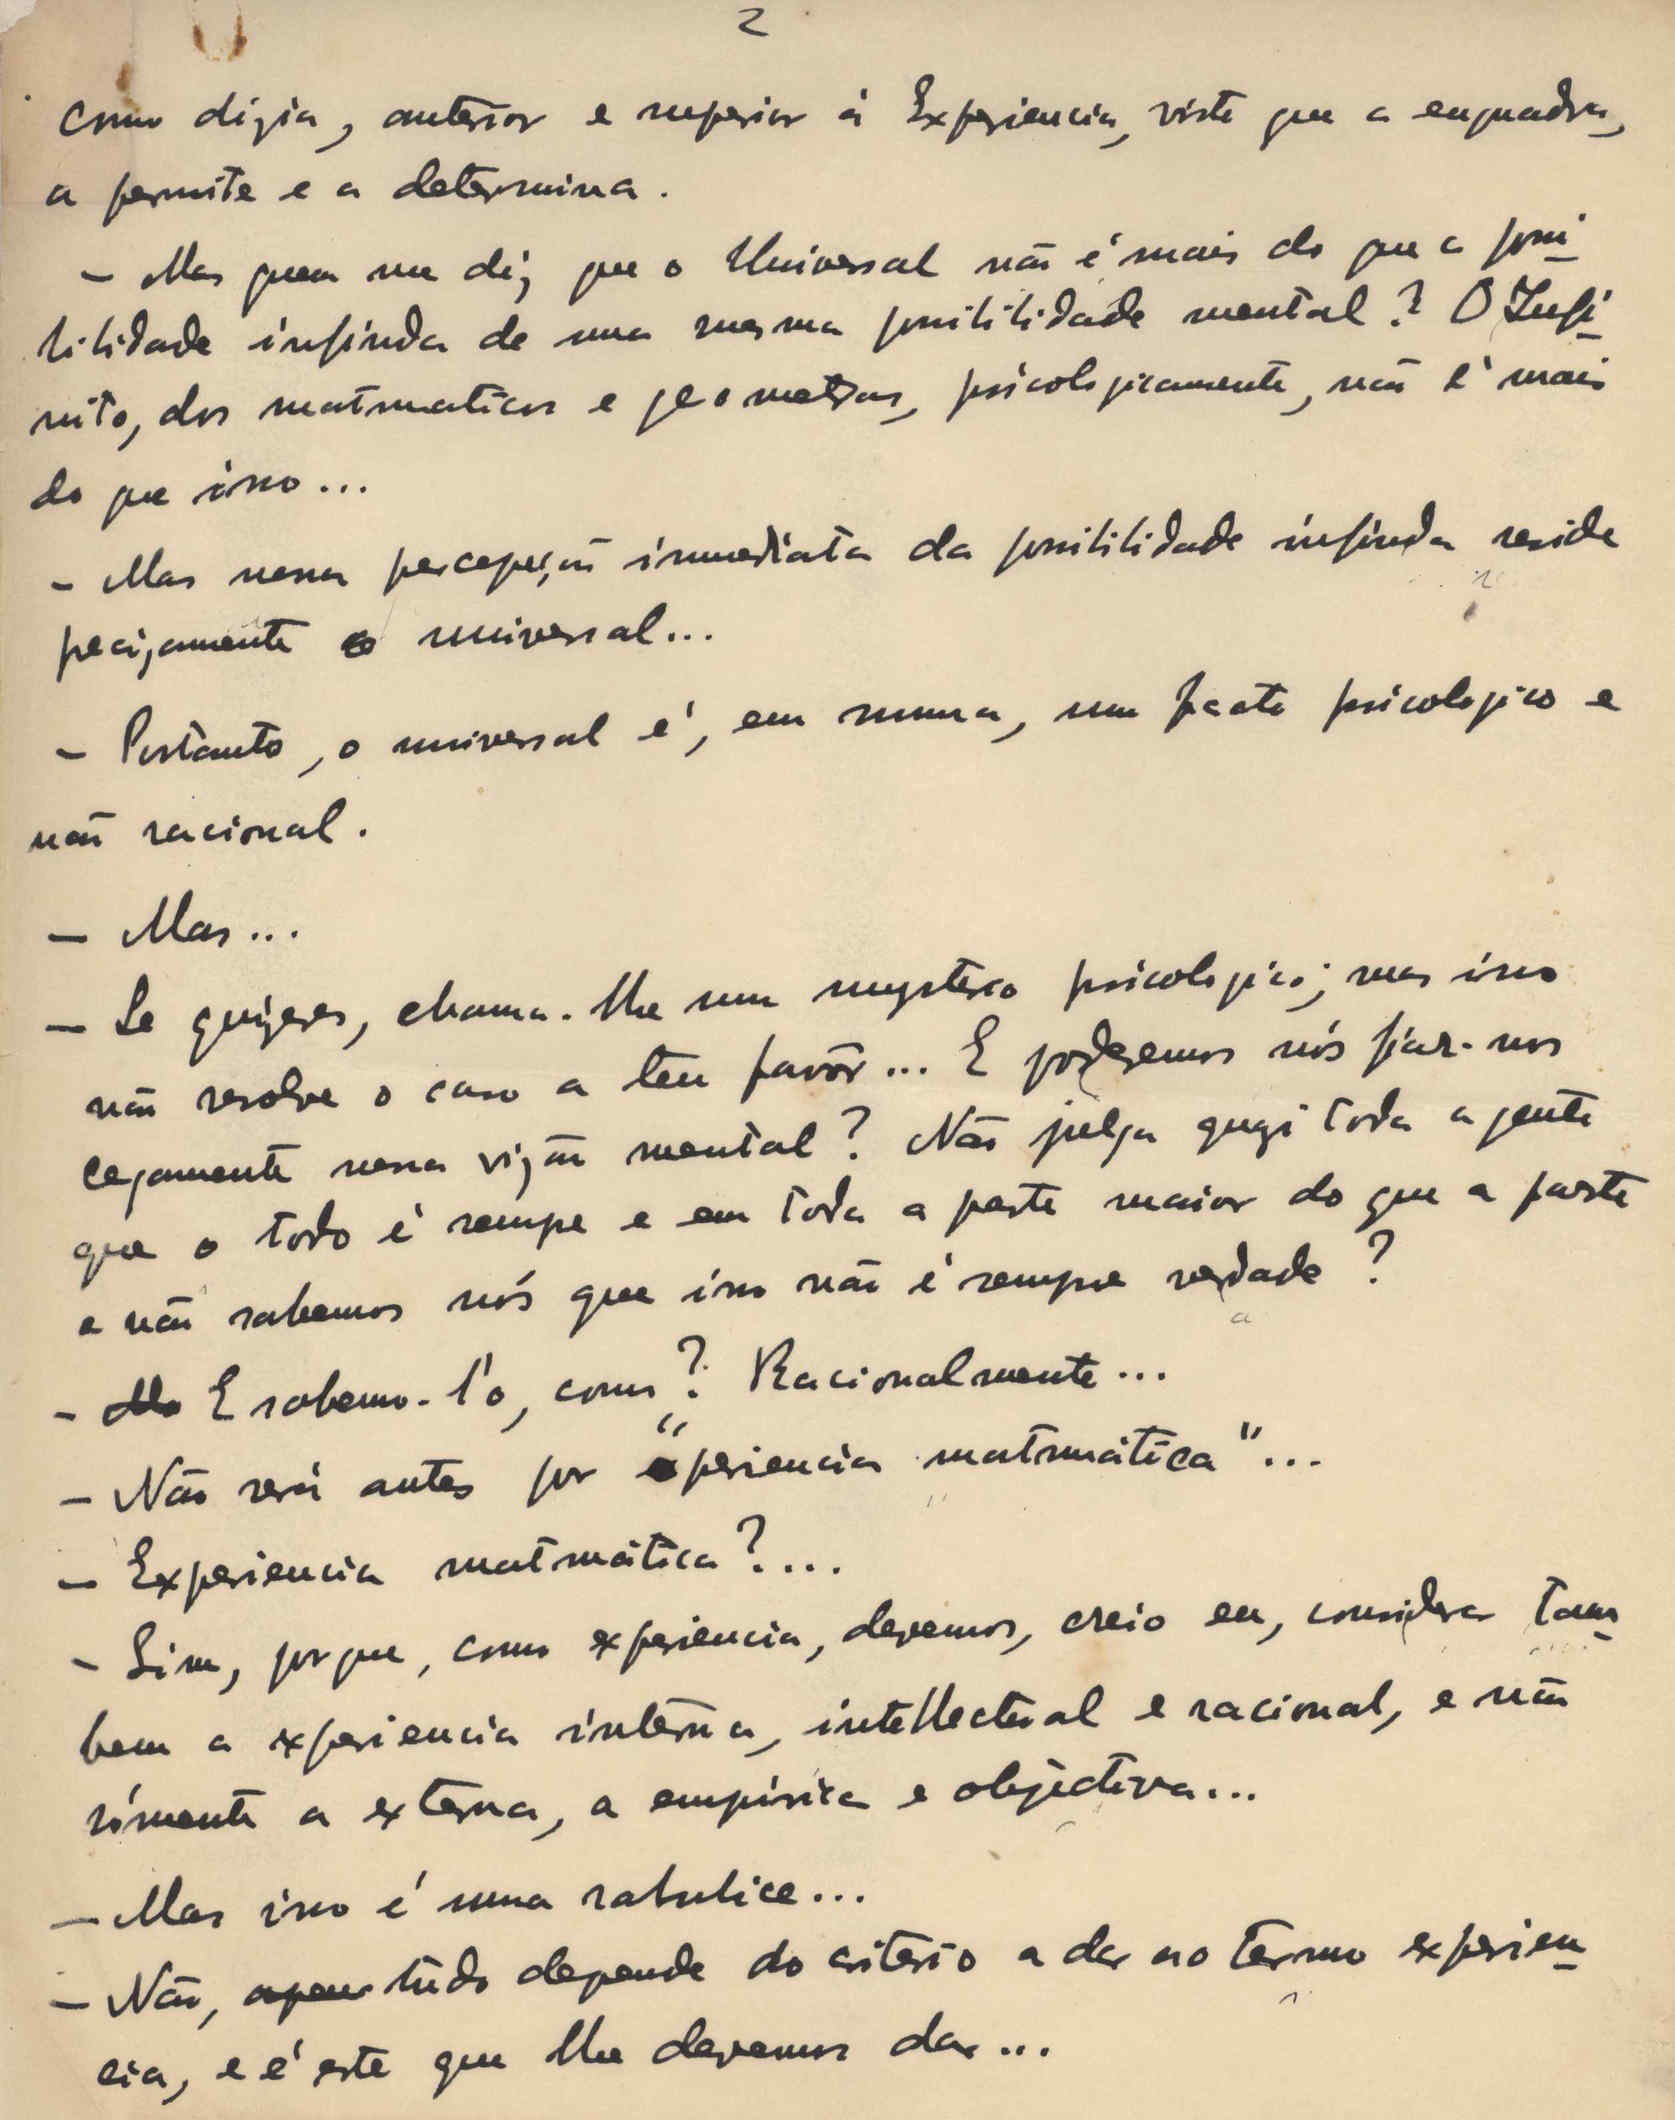 2
como dizia, anterior e superior á Experiencia, visto que a enquadra,
a permite e a determina.
- Mas quem me diz que o Universal não é mais do que a possi-
bilidade infinda de uma mesma possibilidade mental? O Infi-
nito, dos matmaticos e geometras, psicologicamente, não é mais
do que isso...
- Mas nessa percepção immediata da possibilidade infinda reside
precizamente o universal...
- Portanto, o universal é, em summa, um facto psicologico e
não racional.
- Mas...
- Se quizeres, chama-lhe um mysterio psicologico; mas isso
não resolve o caso a teu favôr... E podemos nós fiar-nos
cegamente nessa vizão mental? Não julga quazi toda a gente
que o todo é sempre e em toda a parte maior do que a parte
e não sabemos nós que isso não é sempre verdade?
- E sabemo-l'o, como? Racionalmente...
- Não será antes por "experiencia matmática"...
- Experiencia matmática?...
- Sim, porque, como experiencia, devemos, creio eu, considerar tam-
bem a experiencia interna, intellectual e racional, e não
sómente a externa, a empírica e objectiva...
- Mas isso é uma rabulice...
- Não, tudo depende do criterio a dar ao termo experien-
cia, e é este que lhe devemos dar...